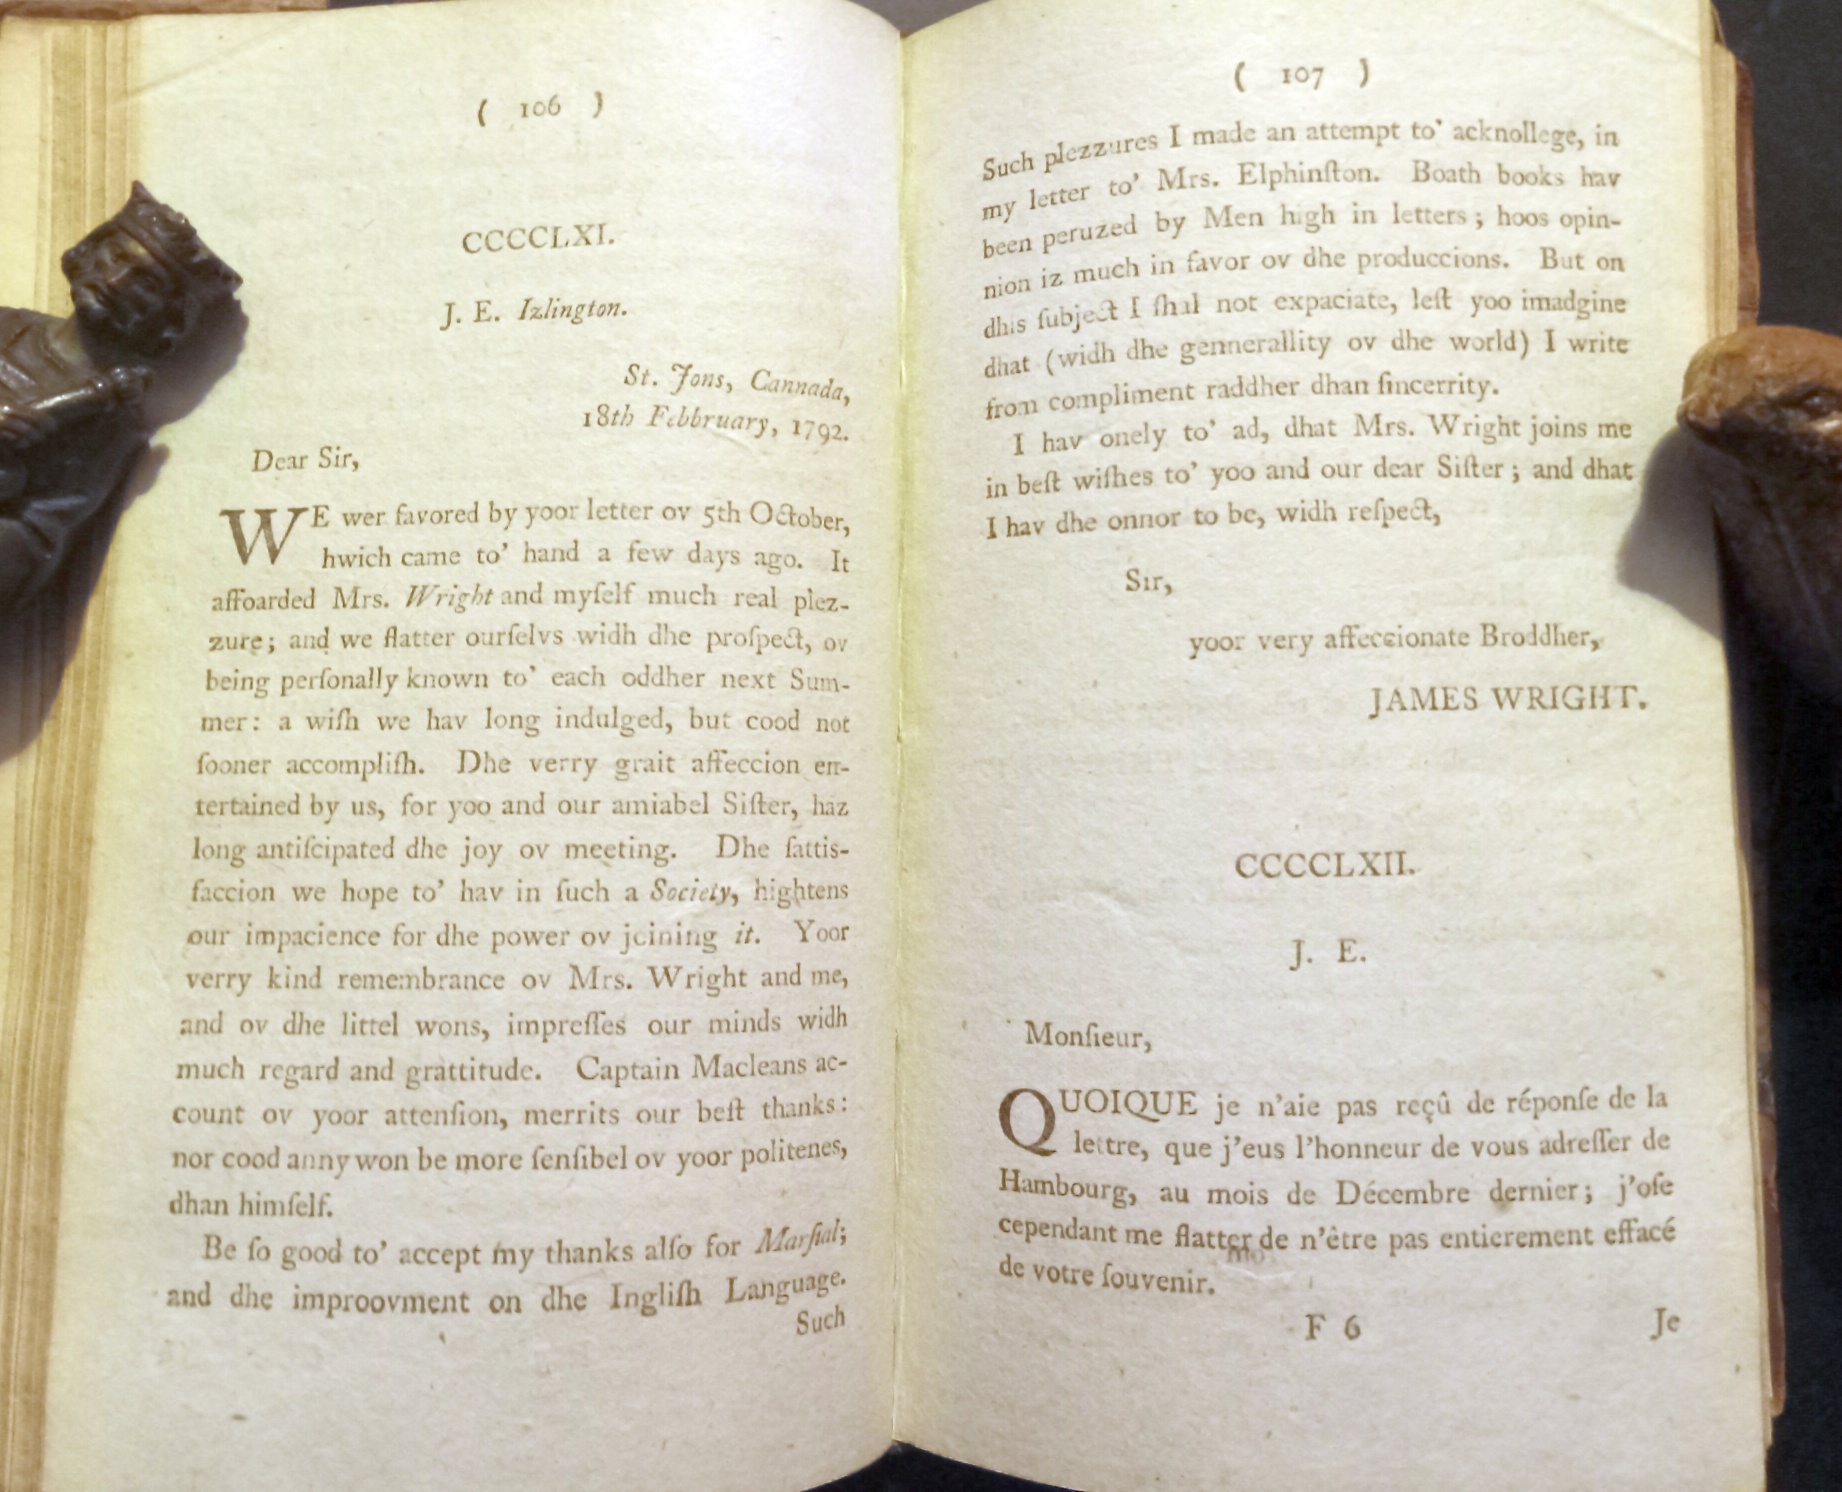 ( 106 )
CCCCCLXI.
J. E. Izlington.
St. Jons, Cannada,
18th Febbruary, 1792.
Dear Sir,
WE wer favored by yoor letter ov 5th October,
hwich came to' hand a few days ago. It
affoarded Mrs. Wright and myſelf much real plez-
zure; and we flatter ourſelvs widh dhe proſpect, ov
being perſonally known to' each oddher next Sum-
mer: a wiſh we hav long indulged, but cood not
ſooner accompliſh. Dhe verry grait affeccion en-
tertained by us, for yoo and our amiabel Siſter, haz
long antiſcipated dhe joy ov meeting. Dhe ſattis-
faccion we hope to' hav in ſuch a Society, hightens
our impacience for dhe power ov joining it. Yoor
verry kind remembrance ov Mrs. Wright and me,
and ov dhe littel wons, impreſſes our minds widh
much regard and grattitude. Captain Macleans ac-
count ov yoor attenſion, merrits our beſt thanks:
nor cood anny won be more ſenſibel ov yoor politenes,
dhan himſelf.
Be ſo good to' accept my thanks alſo for Marſial;
and dhe improovment on dhe Ingliſh Language.
Such
( 107 )
Such plezzures I made an attempt to' acknollege, in
my letter to' Mrs. Elphinſton. Boath books hav
been peruzed by Men high in letters; hoos opin-
nion iz much in favor ov dhe produccions. But on
dhis ſubject I ſhal not expaciate, leſt yoo imadgine
dhat (widh dhe gennerallity ov dhe world) I write
from compliment raddher dhan ſincerrity.
I hav onely to' ad, dhat Mrs. Wright joins me
in beſt wiſhes to' yoo and our dear Siſter; and dhat
I hav dhe onnor to be, widh reſpect,
Sir,
yoor very affeccionate Broddher,
JAMES WRIGHT.
CCCCCLXII.
J. E.
Monſieur,
QUOIQUE je n'aie pas reçû de réponſe de la
lettre, que j'eus l'honneur de vous adreſſer de
Hambourg, au mois de Décembre dernier; j'oſe
cependant me flatter de n'être pas entierement effacé
de votre ſouvenir.
F 6 Je